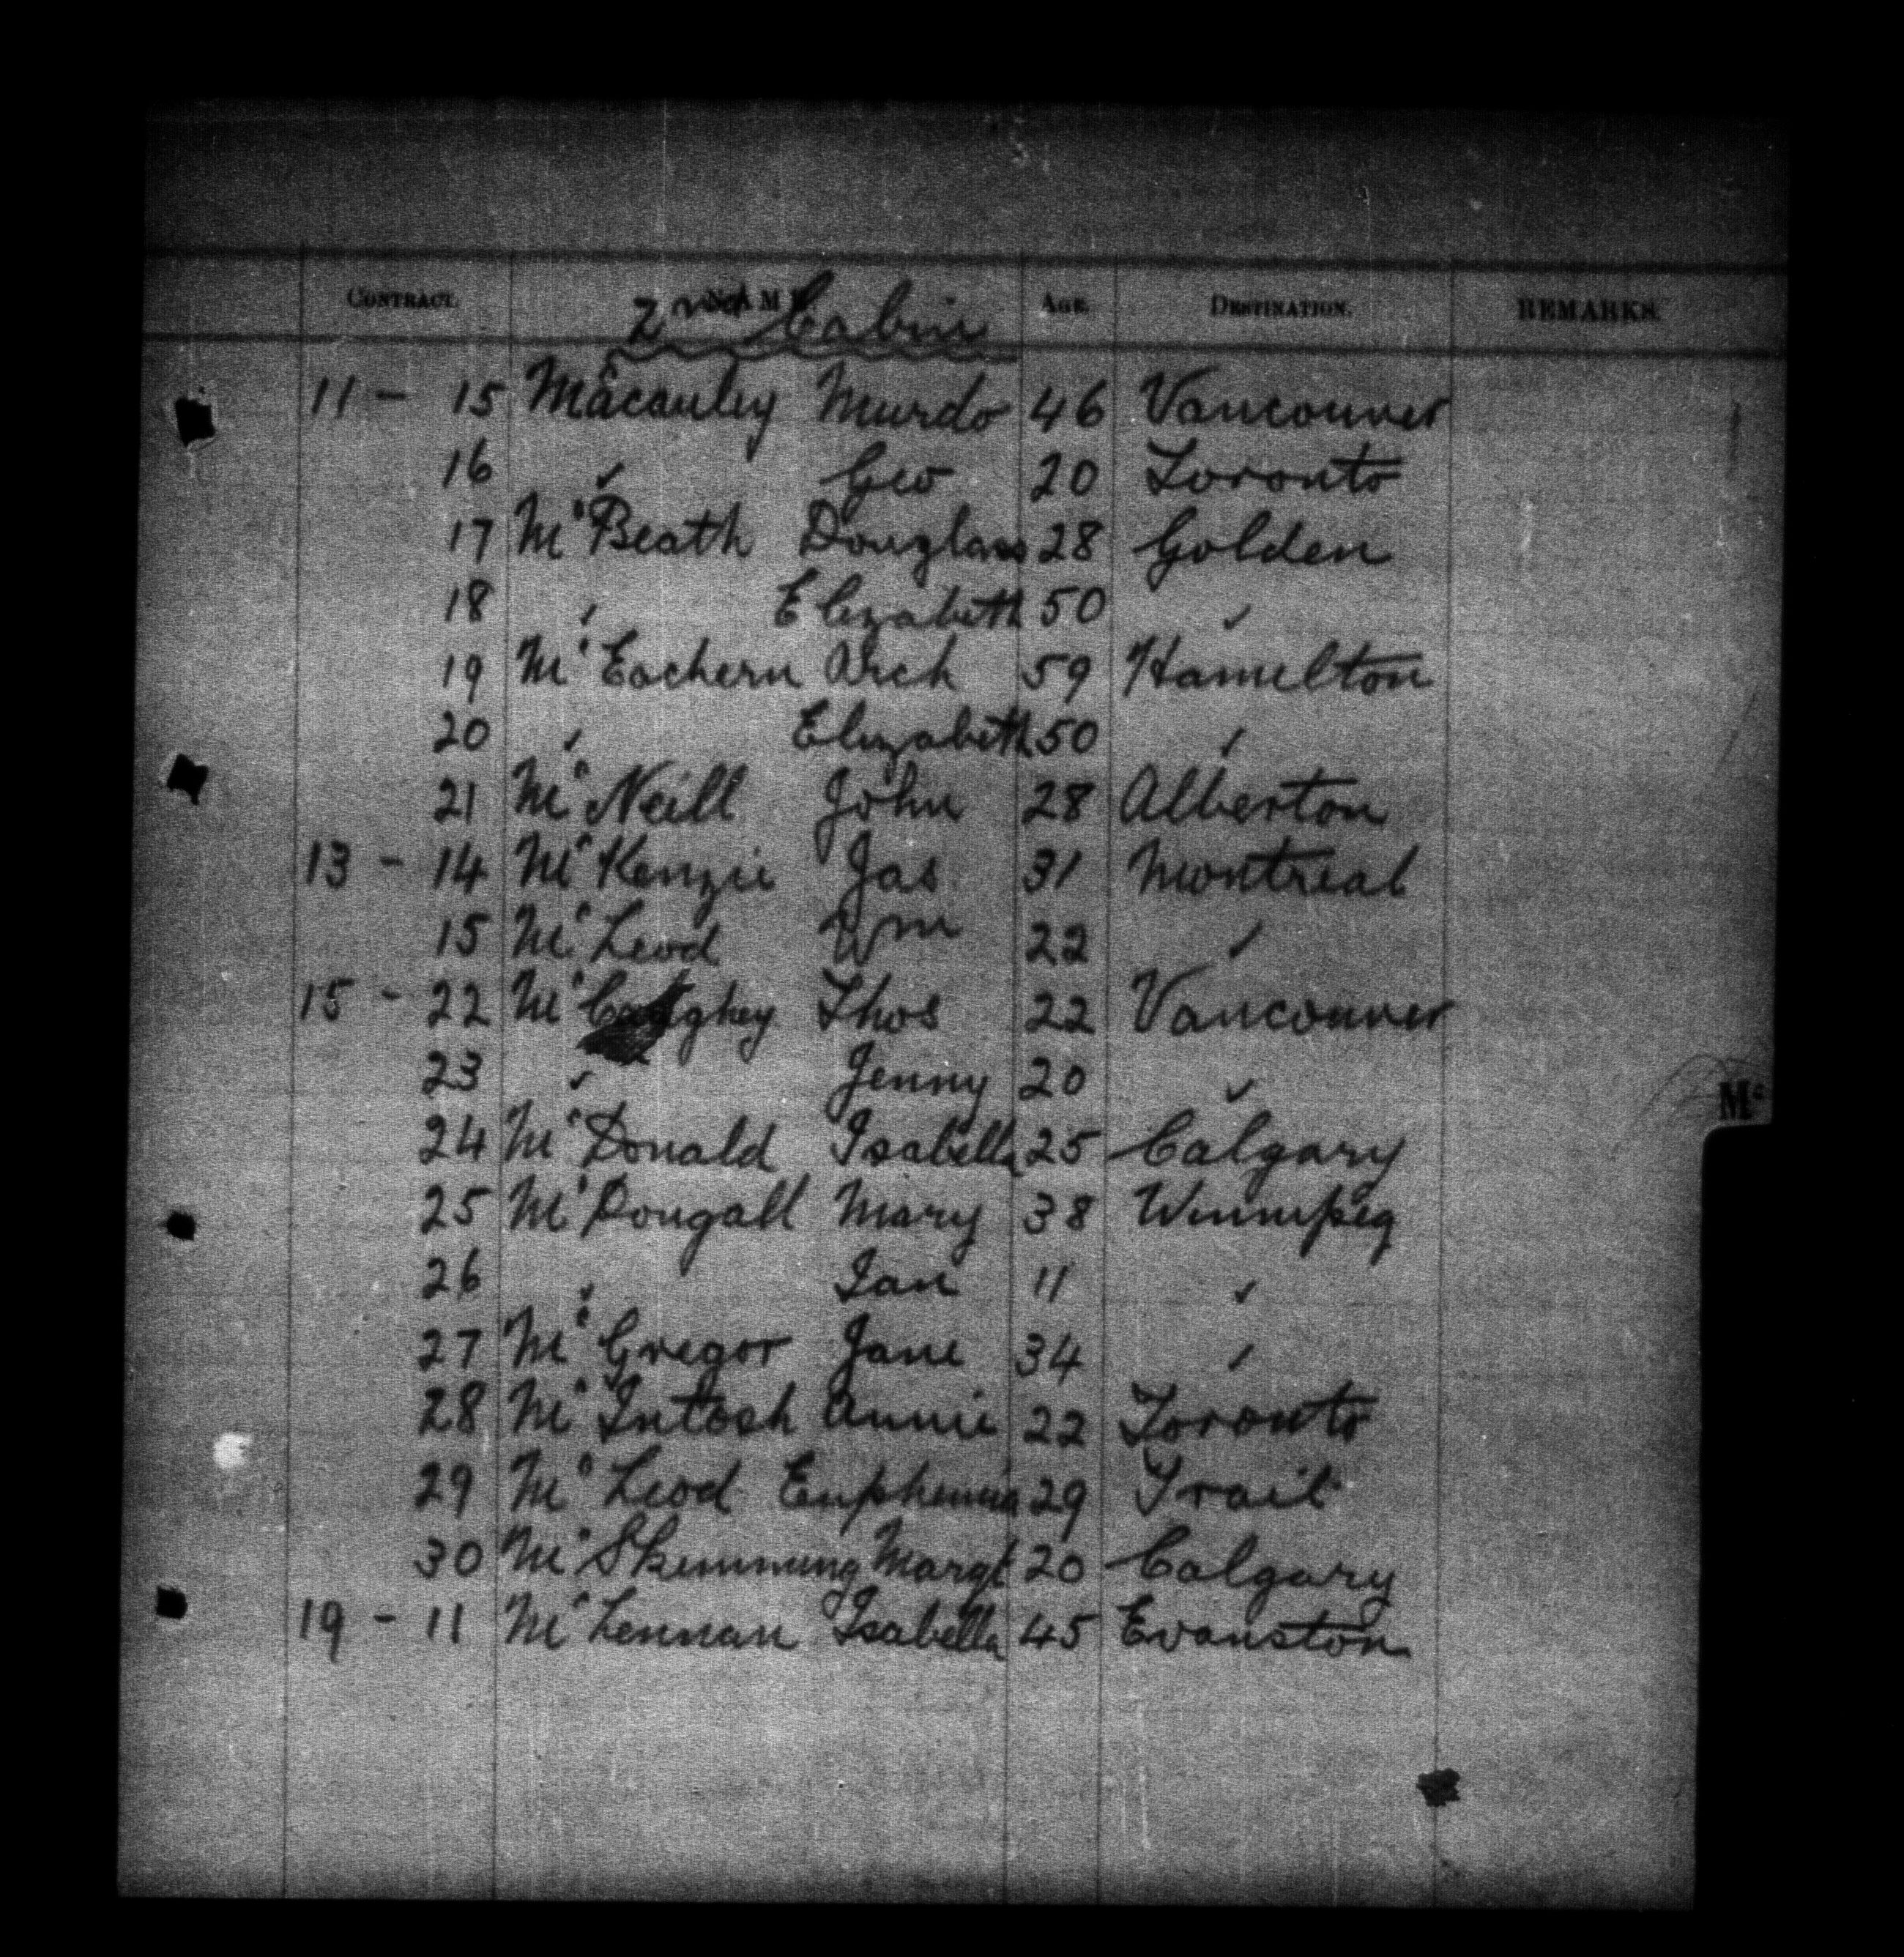 CONTRACT. NAME AGE. DESTINATION. REMARKS.
2nd Cabin
11 - 15 Macauley Murdo 46 Vancouver
16 " Geo 20 Toronto
17 McBeath Douglass 28 Golden
18 " Elizabeth 50 "
19 McEachern Arch 59 Hamilton
20 " Elizabeth 50 "
21 McNeill John 28 Alberton
13 - 14 McKenzie Jas 31 Montreal
15 McLeod Wm 22 "
15 - 22 McCaughey Thos 22 Vancouver
23 " Jenny 20 "
24 McDonald Isabella 25 Calgary
25 McDougall Mary 38 Winnipeg
26 " Ian 11 "
27 McGregor Jane 34 "
28 McIntosh Annie 22 Toronto
29 McLeod Euphemia 29 Trail
30 McSkimming Margt 20 Calgary
19 - 11 McLennan Isabella 45 Evanston
Mc